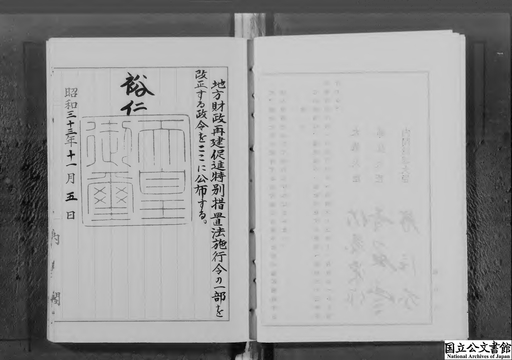 地方財政再建促進特別措置法施行令の一部を
改正する政令をここに公布する。
裕仁
天皇
御璽
昭和三十三年十一月五日
内閣
国立公文書館
National Archives of Japan